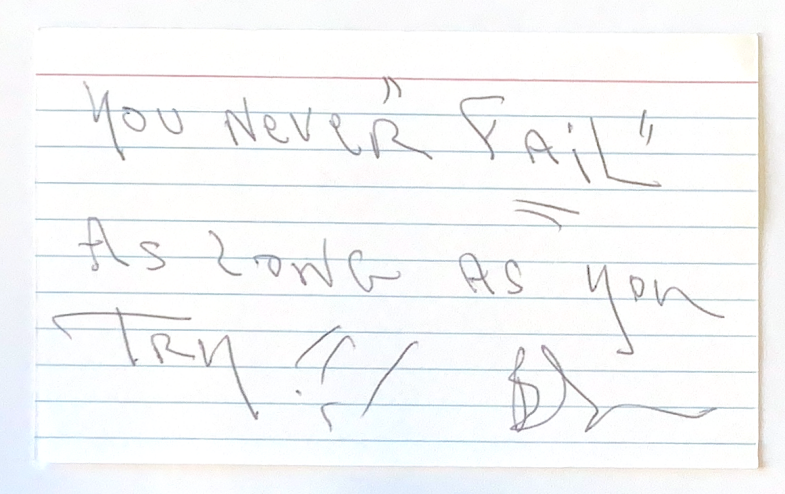 You Never "Fail"
As Long As You
Try !!!